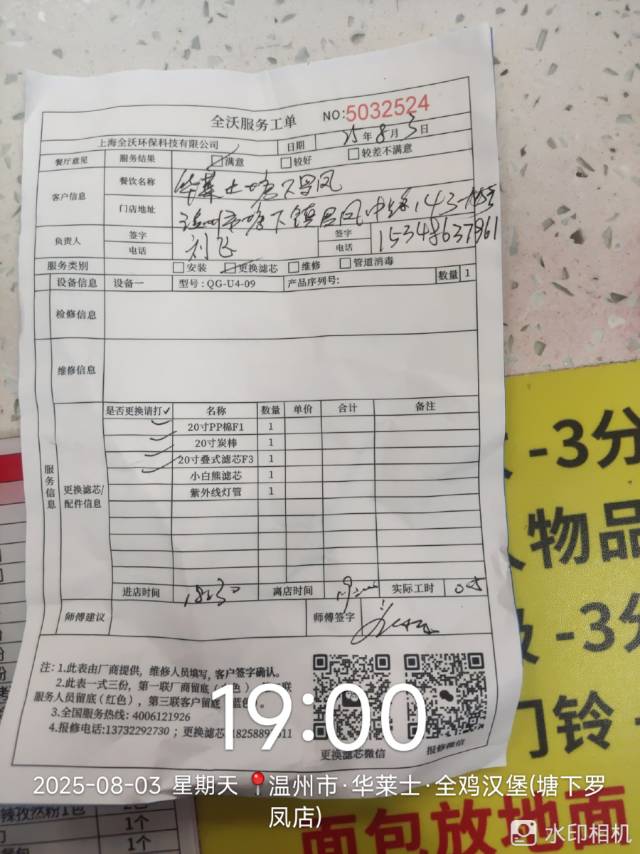 全沃服务工单
NO:5032524
上海全沃环保科技有限公司 日期 25年8月3日
餐厅意见 服务结果 ☑满意 □较好 □较差不满意
客户信息 餐饮名称 华莱士塘下罗凤
门店地址 温州市塘下镇罗凤中路142-
负责人 签字 刘飞 签字
电话 电话 15348637861
服务类别 □安装 ☑更换滤芯 □维修 □管道消毒
设备信息 设备一 型号:QG-U4-09 产品序列号: 数量 1
检修信息
维修信息
服务信息
更换滤芯/配件信息
是否更换请打✓ 名称 数量 单价 合计 备注
✓ 20寸PP棉F1 1
✓ 20寸炭棒 1
✓ 20寸叠式滤芯F3 1
小白熊滤芯 1
紫外线灯管 1
进店时间 18:30 离店时间 实际工时
师傅建议 师傅签字
注:1.此表由厂商提供,维修人员填写,客户签字确认。
2.此表一式三份,第一联厂商留底
服务人员留底(红色),第三联客户留底
3.全国服务热线:4006121926
4.报修电话:13732292730;更换滤芯
更换滤芯微信
报修微信
19:00
2025-08-03 星期天 温州市·华莱士·全鸡汉堡(塘下罗凤店)
-3分
物品
-3分
门铃
面包放地面
1个
1个
水印相机